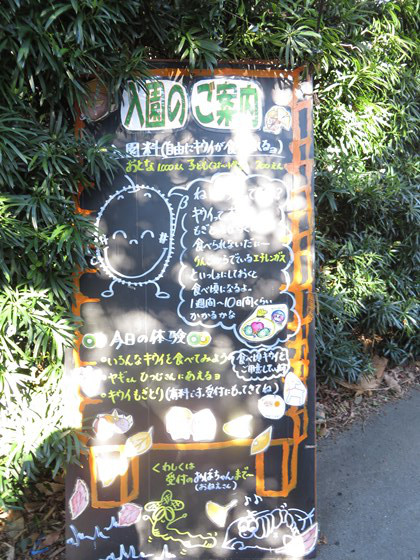 入園のご案内
園料(自由にキウイが食べれるヨ)
おとな 1000えん 子ども
キウイって
もぎ
食べられないんだー
りんごからでているエチレンガス
といっしょにしておくと
食べ頃になるよ。
1週間〜10日間くらい
かかるかな
今日の体験
・いろんなキウイを食べてみよう
食べ頃キウイを
ご用意しています
・ヤギさん ひつじさんにあえるヨ
・キウイもぎとり(有料です。受付にもってきてね)
くわしくは
受付のおばちゃんまで〜
(おねえさん)